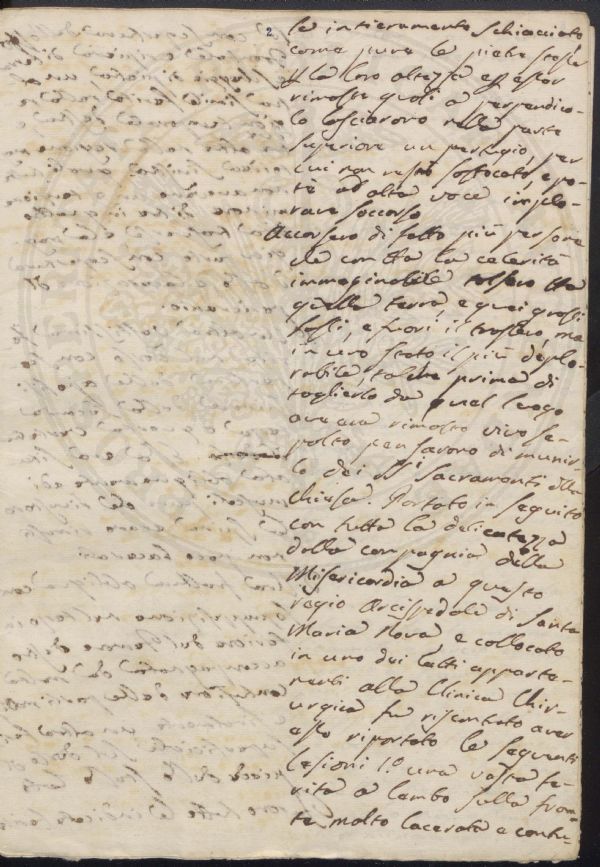 2.
le intieramente schiacciato
come pure le pietre stesse
la loro altezza ed esser
rimaste quasi a perpendico-
lo lasciarono nella parte
superiore un pertugio, per
cui non restò soffocato, e po-
te ad alta voce implo-
rare soccorso
Accorsero di fatto più persone
che con tta la celerità
immaginabile tolsero tta
quella terra, e quei grossi
sassi, e fuori il trassero, ma
in uno stato il più deplo-
rabile, talche prima di
toglierlo da quel luogo
ove era rimasto vivo se-
polto pensarono di munir-
lo dei SSi Sacramenti della
chiesa. Portato in seguito
con tutta la delicatezza
dalla compagnia della
Misericordia a questo
regio Arcispedale di Santa
Maria Nova, e collocato
in uno dei letti apparte-
nenti alla Clinica Chir-
urgica fu riscontrato aver
esso riportato le seguenti
lesioni 1.° una vasta fe-
rita a lembo sulla fron-
te molto lacerata e contu-